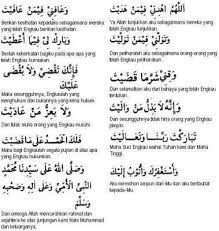 اللَّهُمَّ اهْدِنِي فِيمَنْ هَدَيْتَ
Ya Allah tunjukkan aku sebagaimana mereka
yang telah Engkau tunjukan
وَعَافِنِي فِيمَنْ عَافَيْتَ
Berikan kesihatan kepadaku sebagaimana mereka
yang telah Engkau berikan kesihatan
وَتَوَلَّنِي فِيمَنْ تَوَلَّيْتَ
Dan peliharalah aku sebagaimana orang-orang
yang telah Engkau
وَبَارِكْ لِي فِيمَا أَعْطَيْتَ
bagiku pada apa-apa yang
telah Engkau
وَقِنِي شَرَّمَا قَضَيْتَ
Dan selamatkan aku dari bahaya yang telah Engkau
tentukan
فَإِنَّكَ تَقْضِي وَلَا يُقْضَى
عَلَيْكَ
Maka sesungguhnya, Engkaulah yang
menghukum dan bukannya yang kena hukum
وَإِنَّهُ لَا يَذِلُّ مَنْ وَالَيْتَ
Dan sesungguhnya tidak hina orang yang Engkau
وَلَا يَعِزُّ مَنْ عَادَيْتَ
Dan tidak mulia orang yang Engkau musuhi
تَبَارَكْتَ رَبَّنَا وَتَعَالَيْتَ
Maha Suci Engkau wahai Tuhan kami dan Maha
Tinggi
فَلَكَ الْحَمْدُ عَلَى مَا قَضَيْتَ
Maha bagi Engkau segala pujian di atas apa
yang Engkau
وَأَسْتَغْفِرُكَ وَأَتُوبُ إِلَيْكَ
Aku memohon ampun dari-Mu dan aku bertaubat
kepada-Mu
وَصَلَّى اللهُ عَلَى سَيِّدِنَا مُحَمَّدٍ
النَّبِيِّ الْأُمِّيِّ وَعَلَى آلِهِ وَصَحْبِهِ
وَسَلَّمَ
Dan semoga Allah mencurahkan rahmat dan
sejahtera ke atas junjungan kami Nabi Muhammad
dan keluarganya